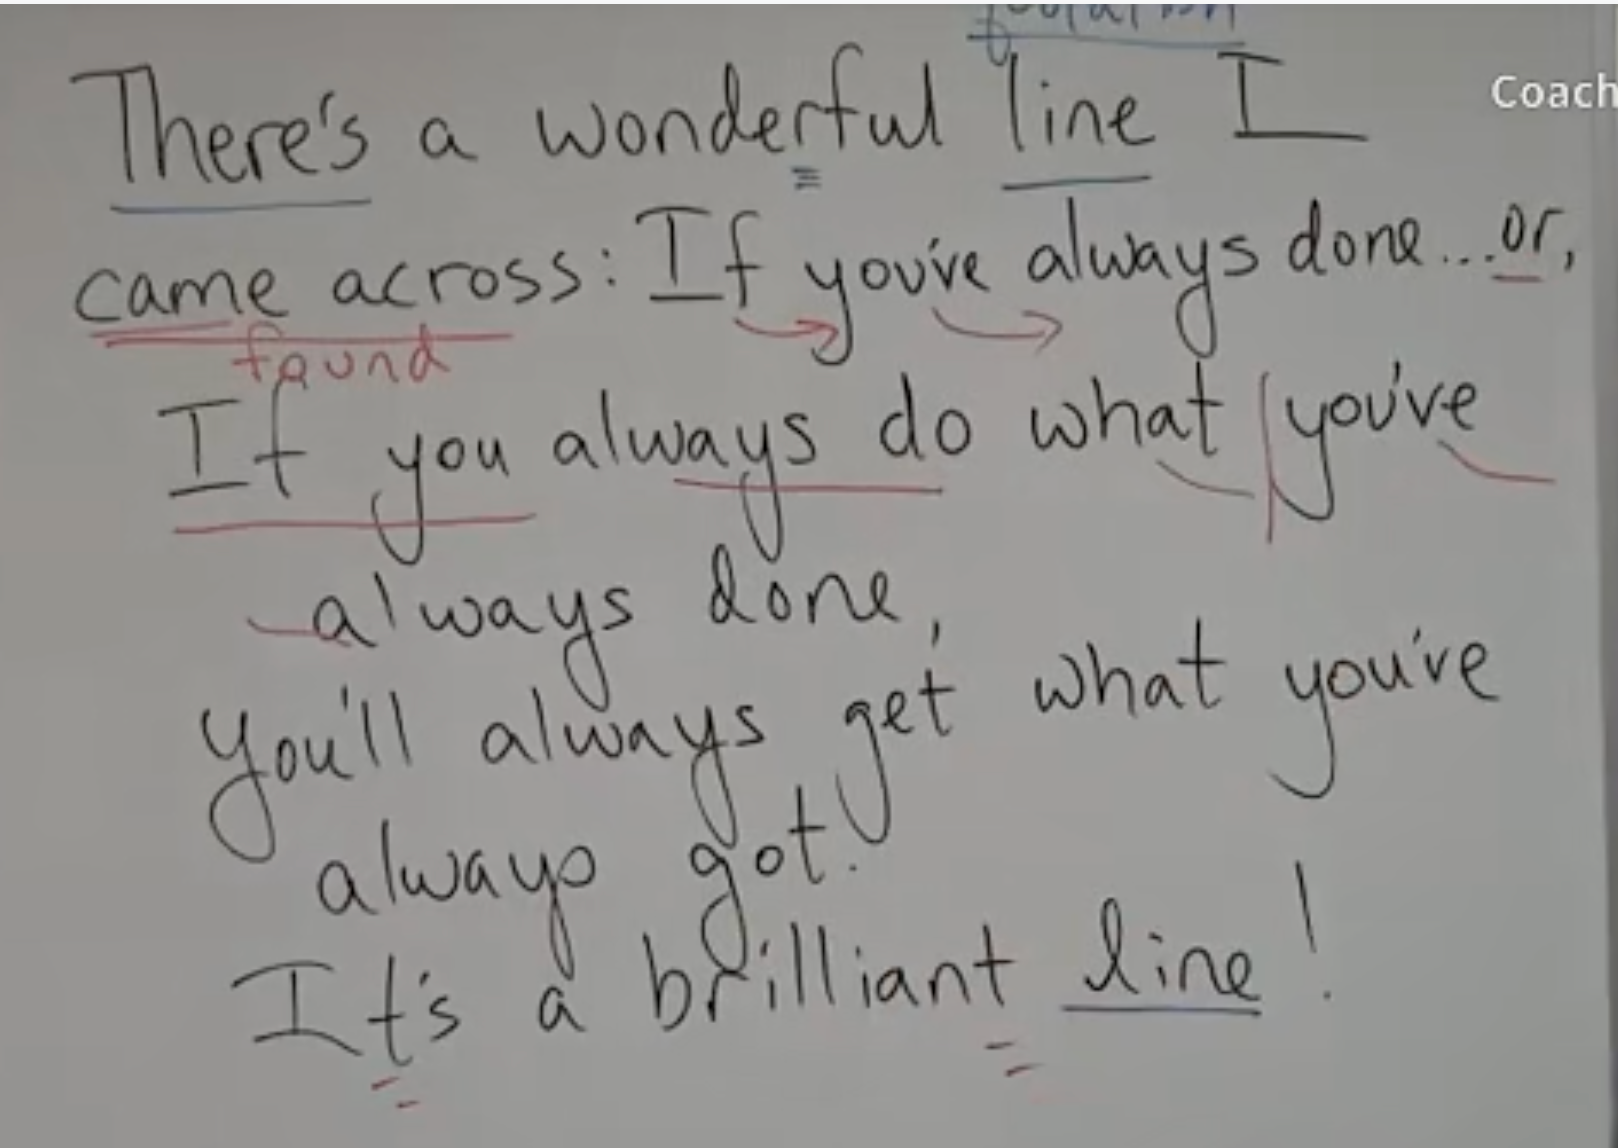 There's a wonderful line I
Coach
came across: If you've always done...or,
found
If you always do what you've
always done,
you'll always get what you've
always got.
It's a brilliant line!